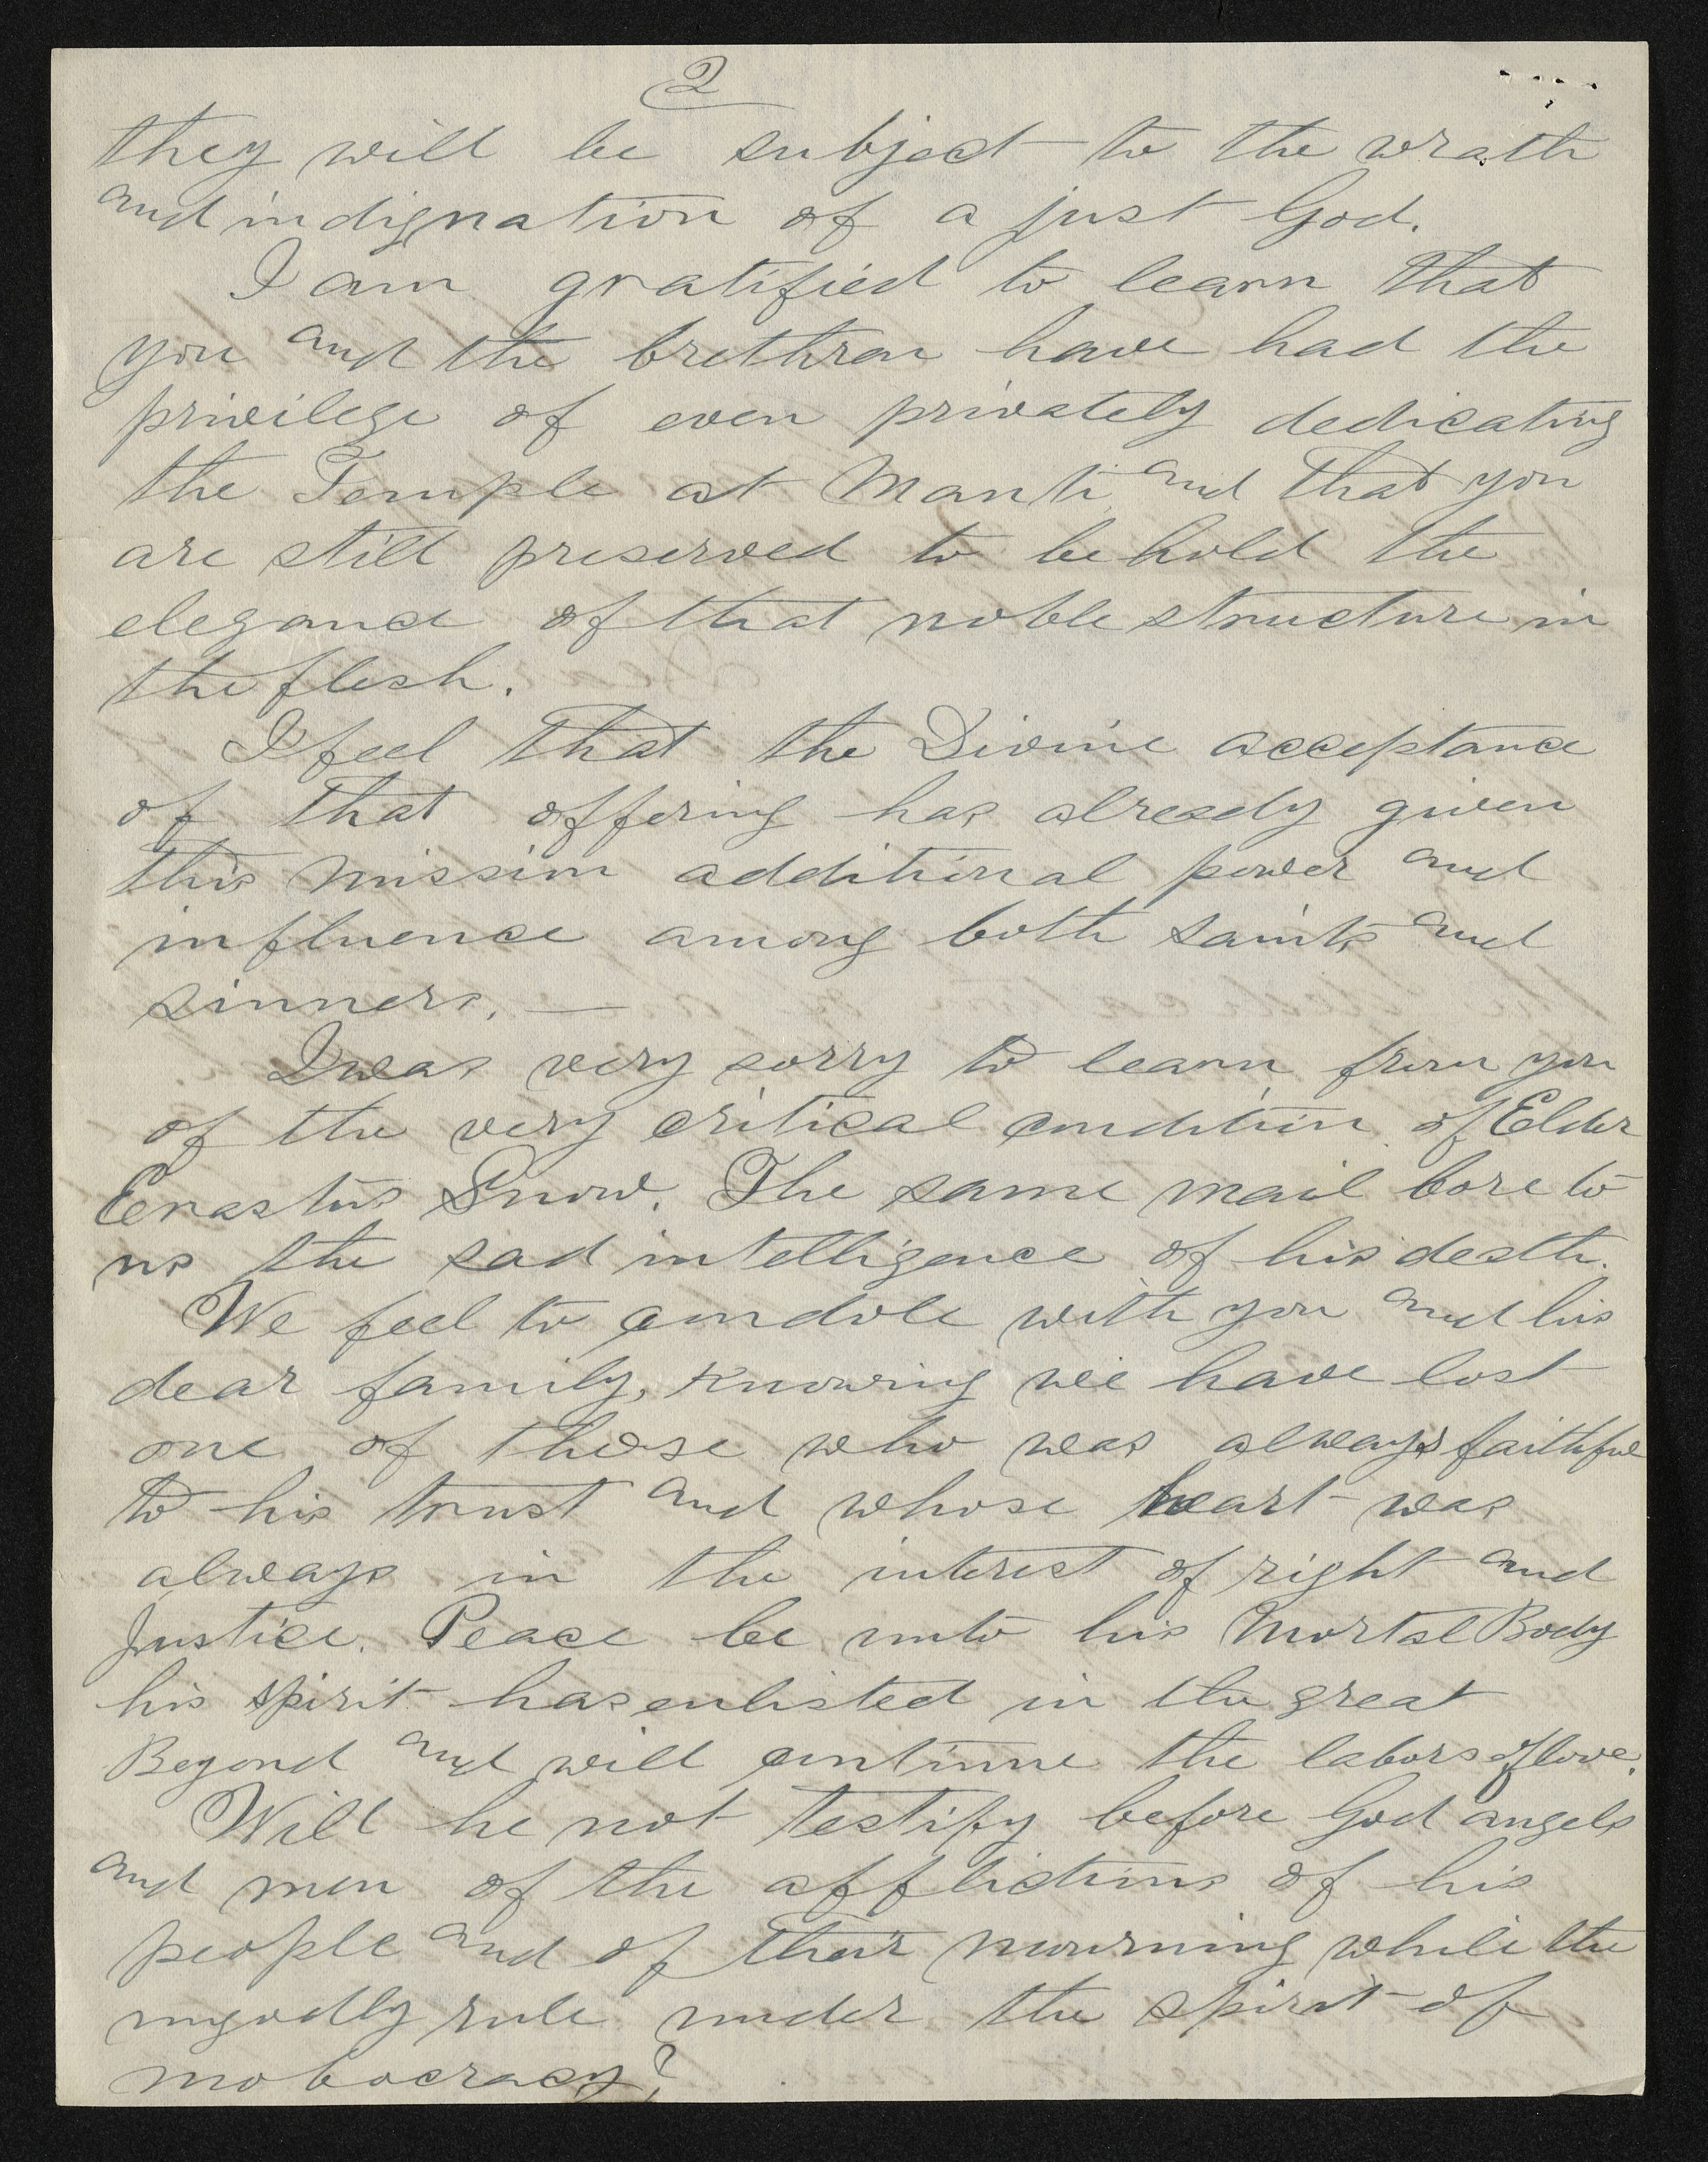 2
they will be subject to the wrath
and indignation of a just God.
I am gratified to learn that
you and the brethren have had the
privilege of even privately dedicating
the Temple at Manti and that you
are still preserved to behold the
elegance of that noble structure in
the flesh.
I feel that the Divine acceptance
of that offering has already given
this mission additional power and
influence among both saints and
sinners. —
I was very sorry to learn from you
of the very critical condition of Elder
Erastus Snow. The same mail bore to
us the sad intelligence of his death.
We feel to condole with you and his
dear family, knowing we have lost
one of those who was always faithful
to his trust and whose heart was
always in the interest of right and
Justice. Peace be unto his Mortal Body
his spirit has enlisted in the great
Beyond and will continue the labors of love.
Will he not testify before God angels
and men of the afflictions of his
people and of their mourning while the
ungodly rule under the spirit of
mobocracy?